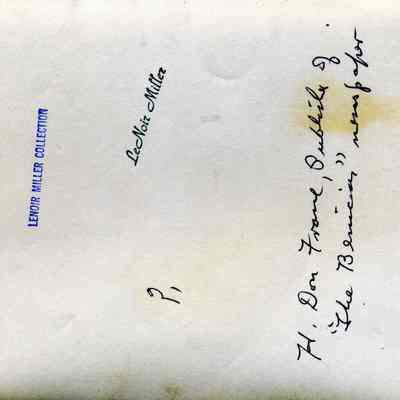 LENOIR MILLER COLLECTION
LeNoir Miller
P,
H. Don Frane, Publisher of
"The Benician" newspaper